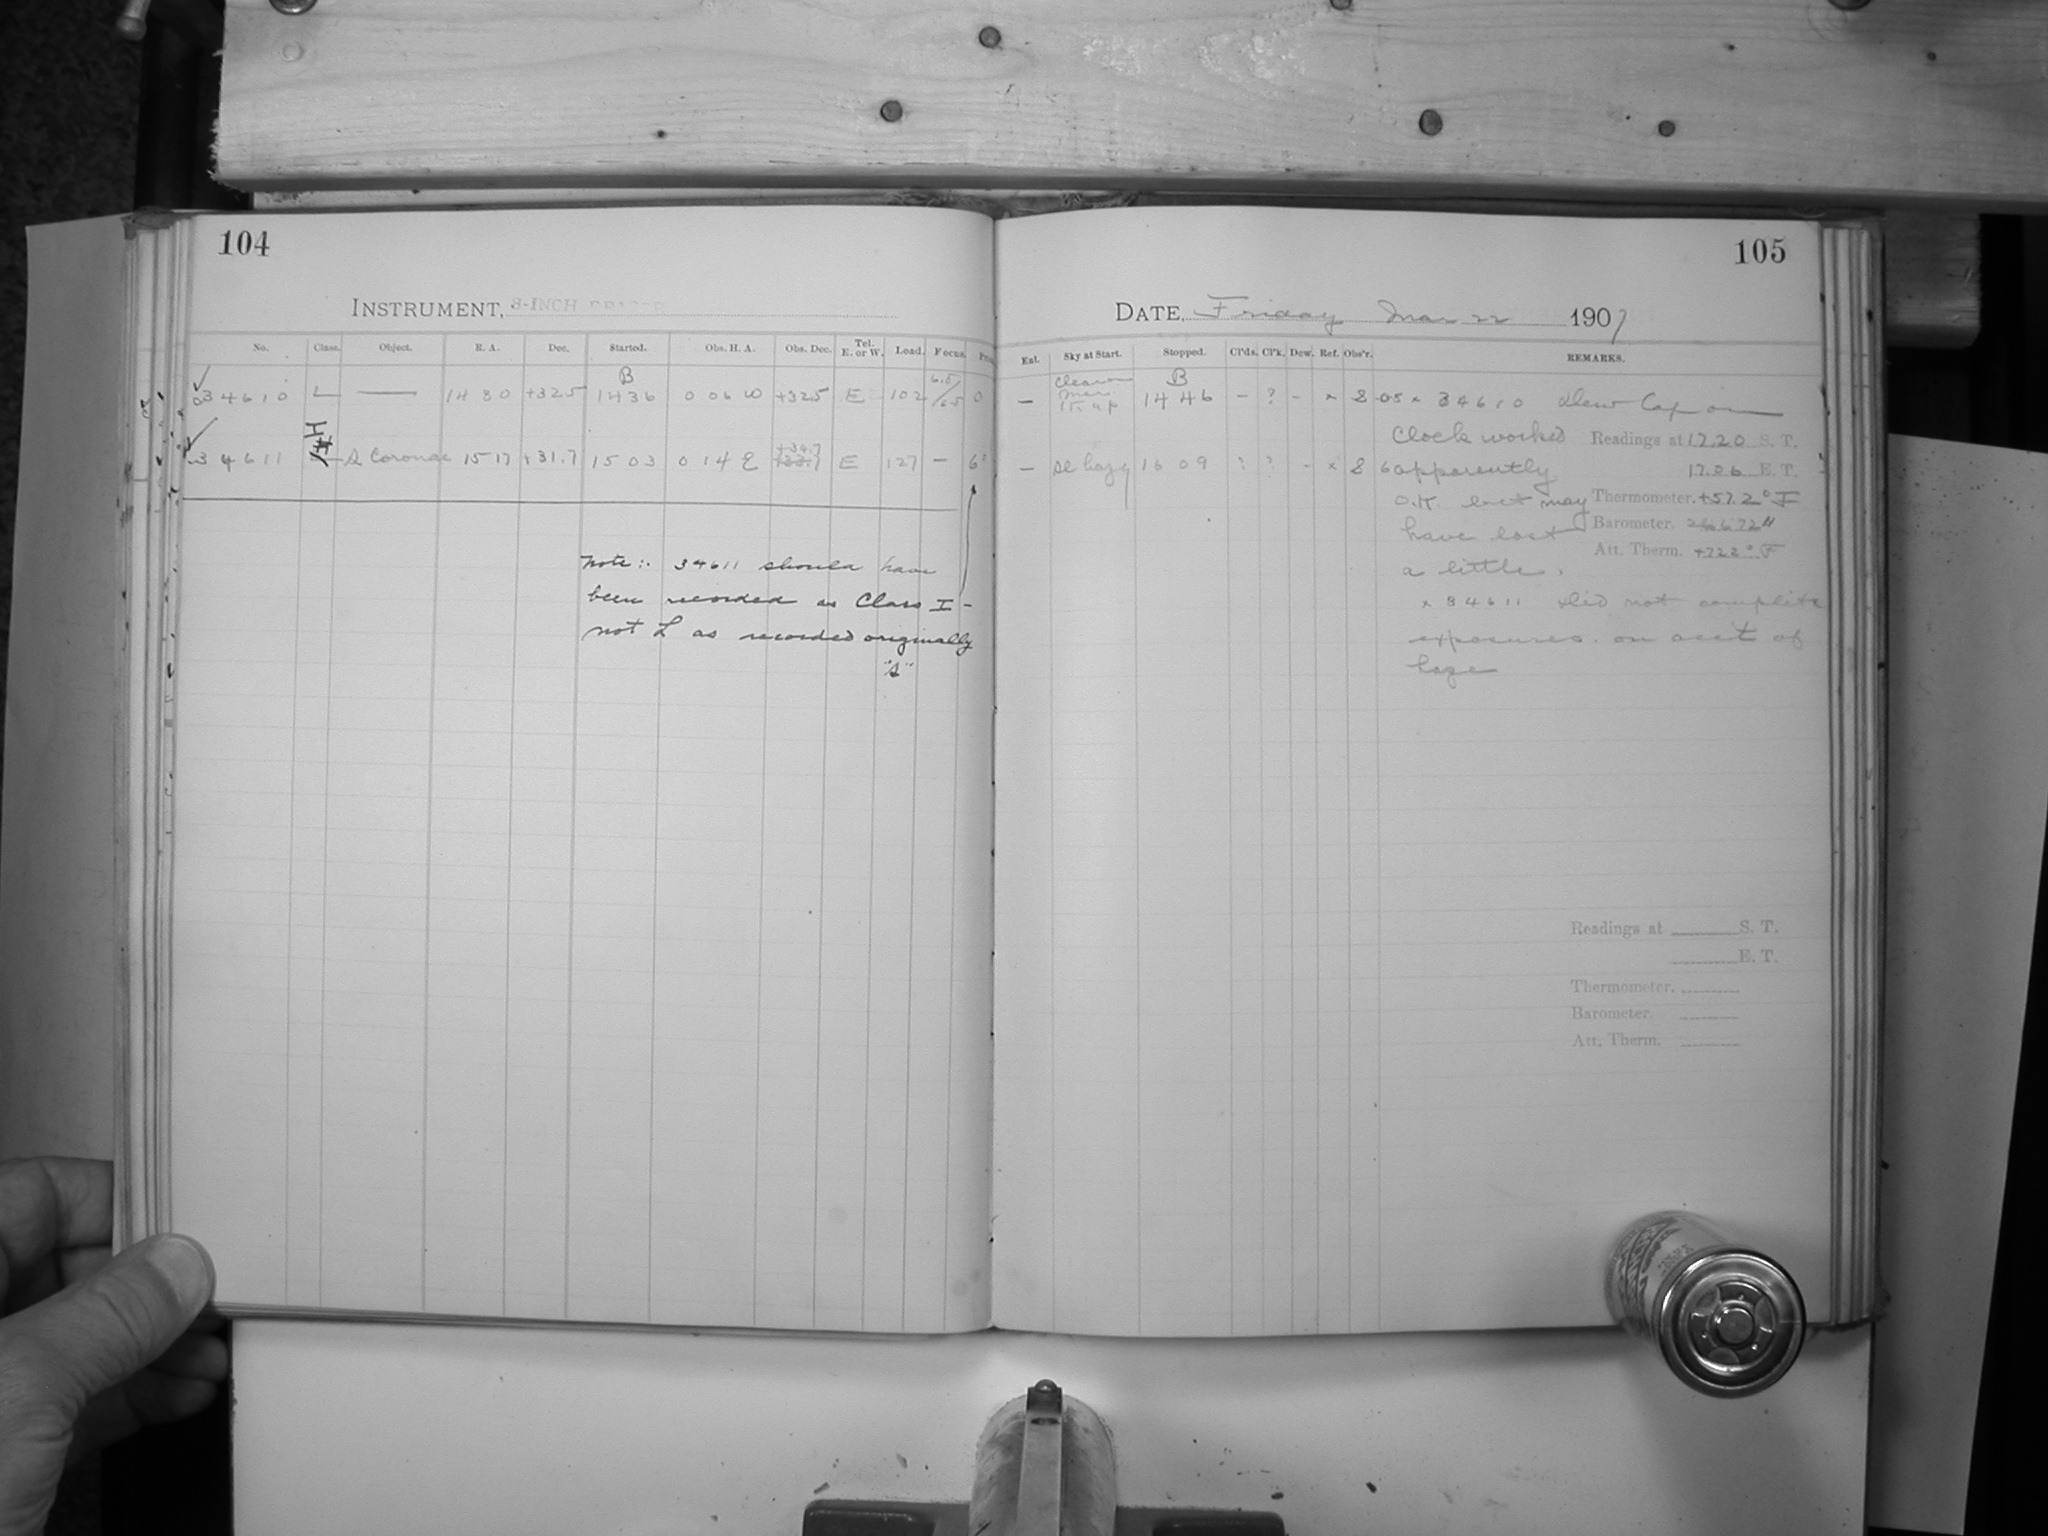 104
INSTRUMENT, 8-INCH DRAPER
No. Class. Object. R. A. Dec. Started. Obs. H. A. Obs. Dec. Tel. E. or W. Load. Focus.
34610 L — 14 30 +32.5 B 14 36 0 06 W +32.5 E 102 0
34611 S Coronae 15 17 +31.7 15 03 0 14 E E 127 — 6
Note:. 34611 should have
been recorded as Class I -
not L as recorded originally
"S"
105
DATE, Friday Mar 22 1907
Eat. Sky at Start. Stopped. Cl'ds. Cl'k. Dew. Ref. Obs'r. REMARKS.
— Clear B 14 46 – ? – × 8 × 34610 Dew Cap on
Clock worked
— Sl hazy 16 09 ? – × 8 apparently
O.K. but may
have lost
a little.
× 34611 Did not complete
exposures. on acct of
haze
Readings at 17.20 S. T.
17.26 E. T.
Thermometer. +57.2° F
Barometer.
Att. Therm. +72.2° F
Readings at S. T.
E. T.
Thermometer.
Barometer.
Att. Therm.